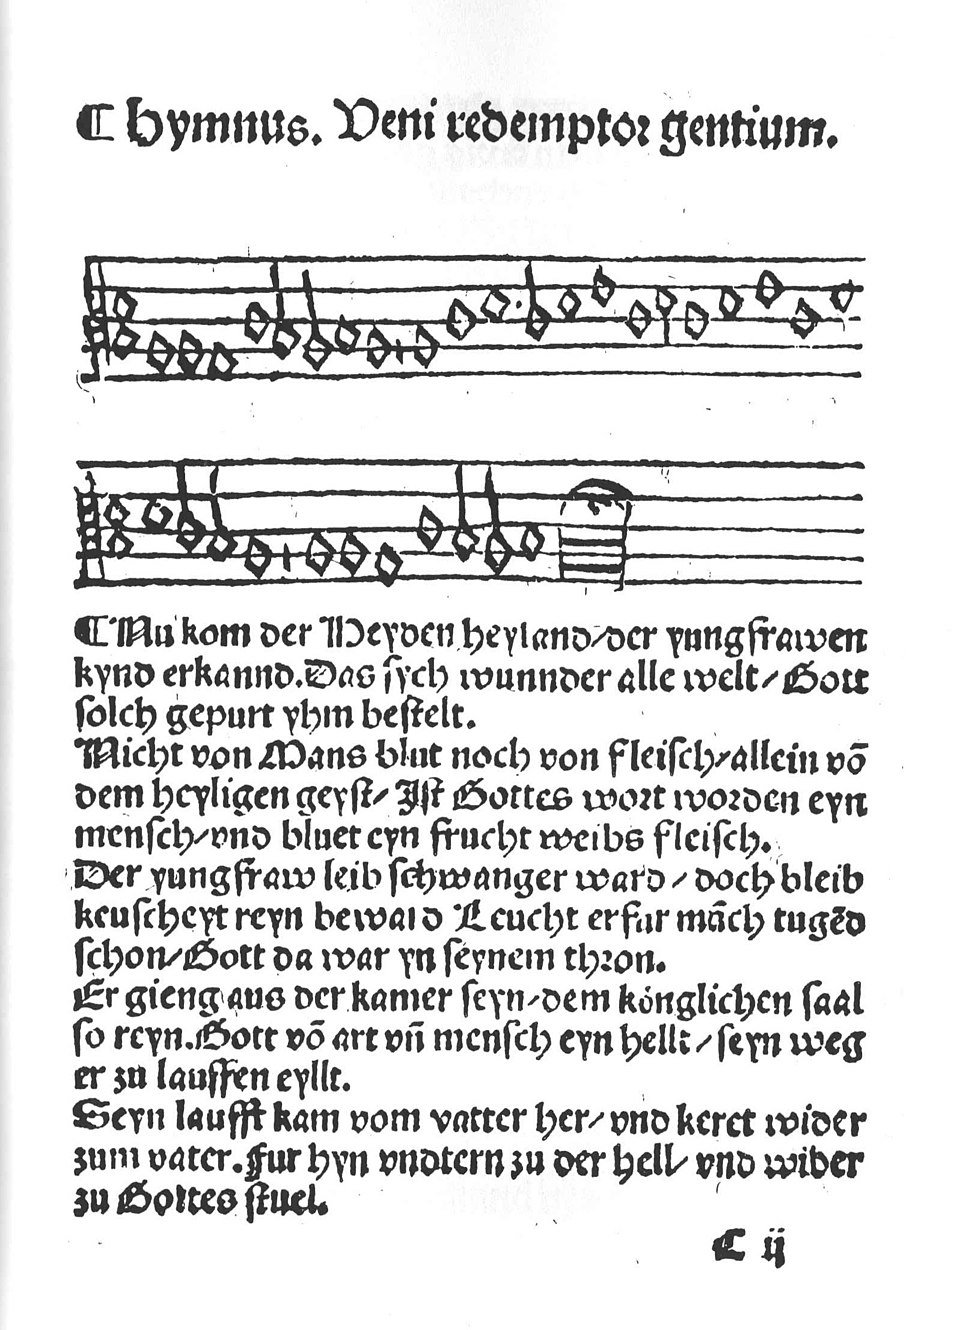 Hymnus. Veni redemptor gentium.
Nu kom der Heyden heyland/der yungfrawen
kynd erkannd. Das sych wunnder alle welt/ Gott
solch gepurt yhm bestelt.
Nicht von Mans blut noch von fleisch/allein võ
dem heyligen geyst/ Ist Gottes wort worden eyn
mensch/vnd bluet eyn frucht weibs fleisch.
Der yungfraw leib schwanger ward / doch bleib
keuscheyt reyn beward Leucht erfur mãch tugẽd
schon/Gott da war yn seynem thron.
Er gieng aus der kamer seyn/dem könglichen saal
so reyn. Gott võ art vñ mensch eyn hellt / seyn weg
er zu lauffen eyllt.
Seyn laufft kam vom vatter her/ vnd keret wider
zum vater. Fur hyn vndtern zu der hell/ vnd wider
zu Gottes stuel.
C ij